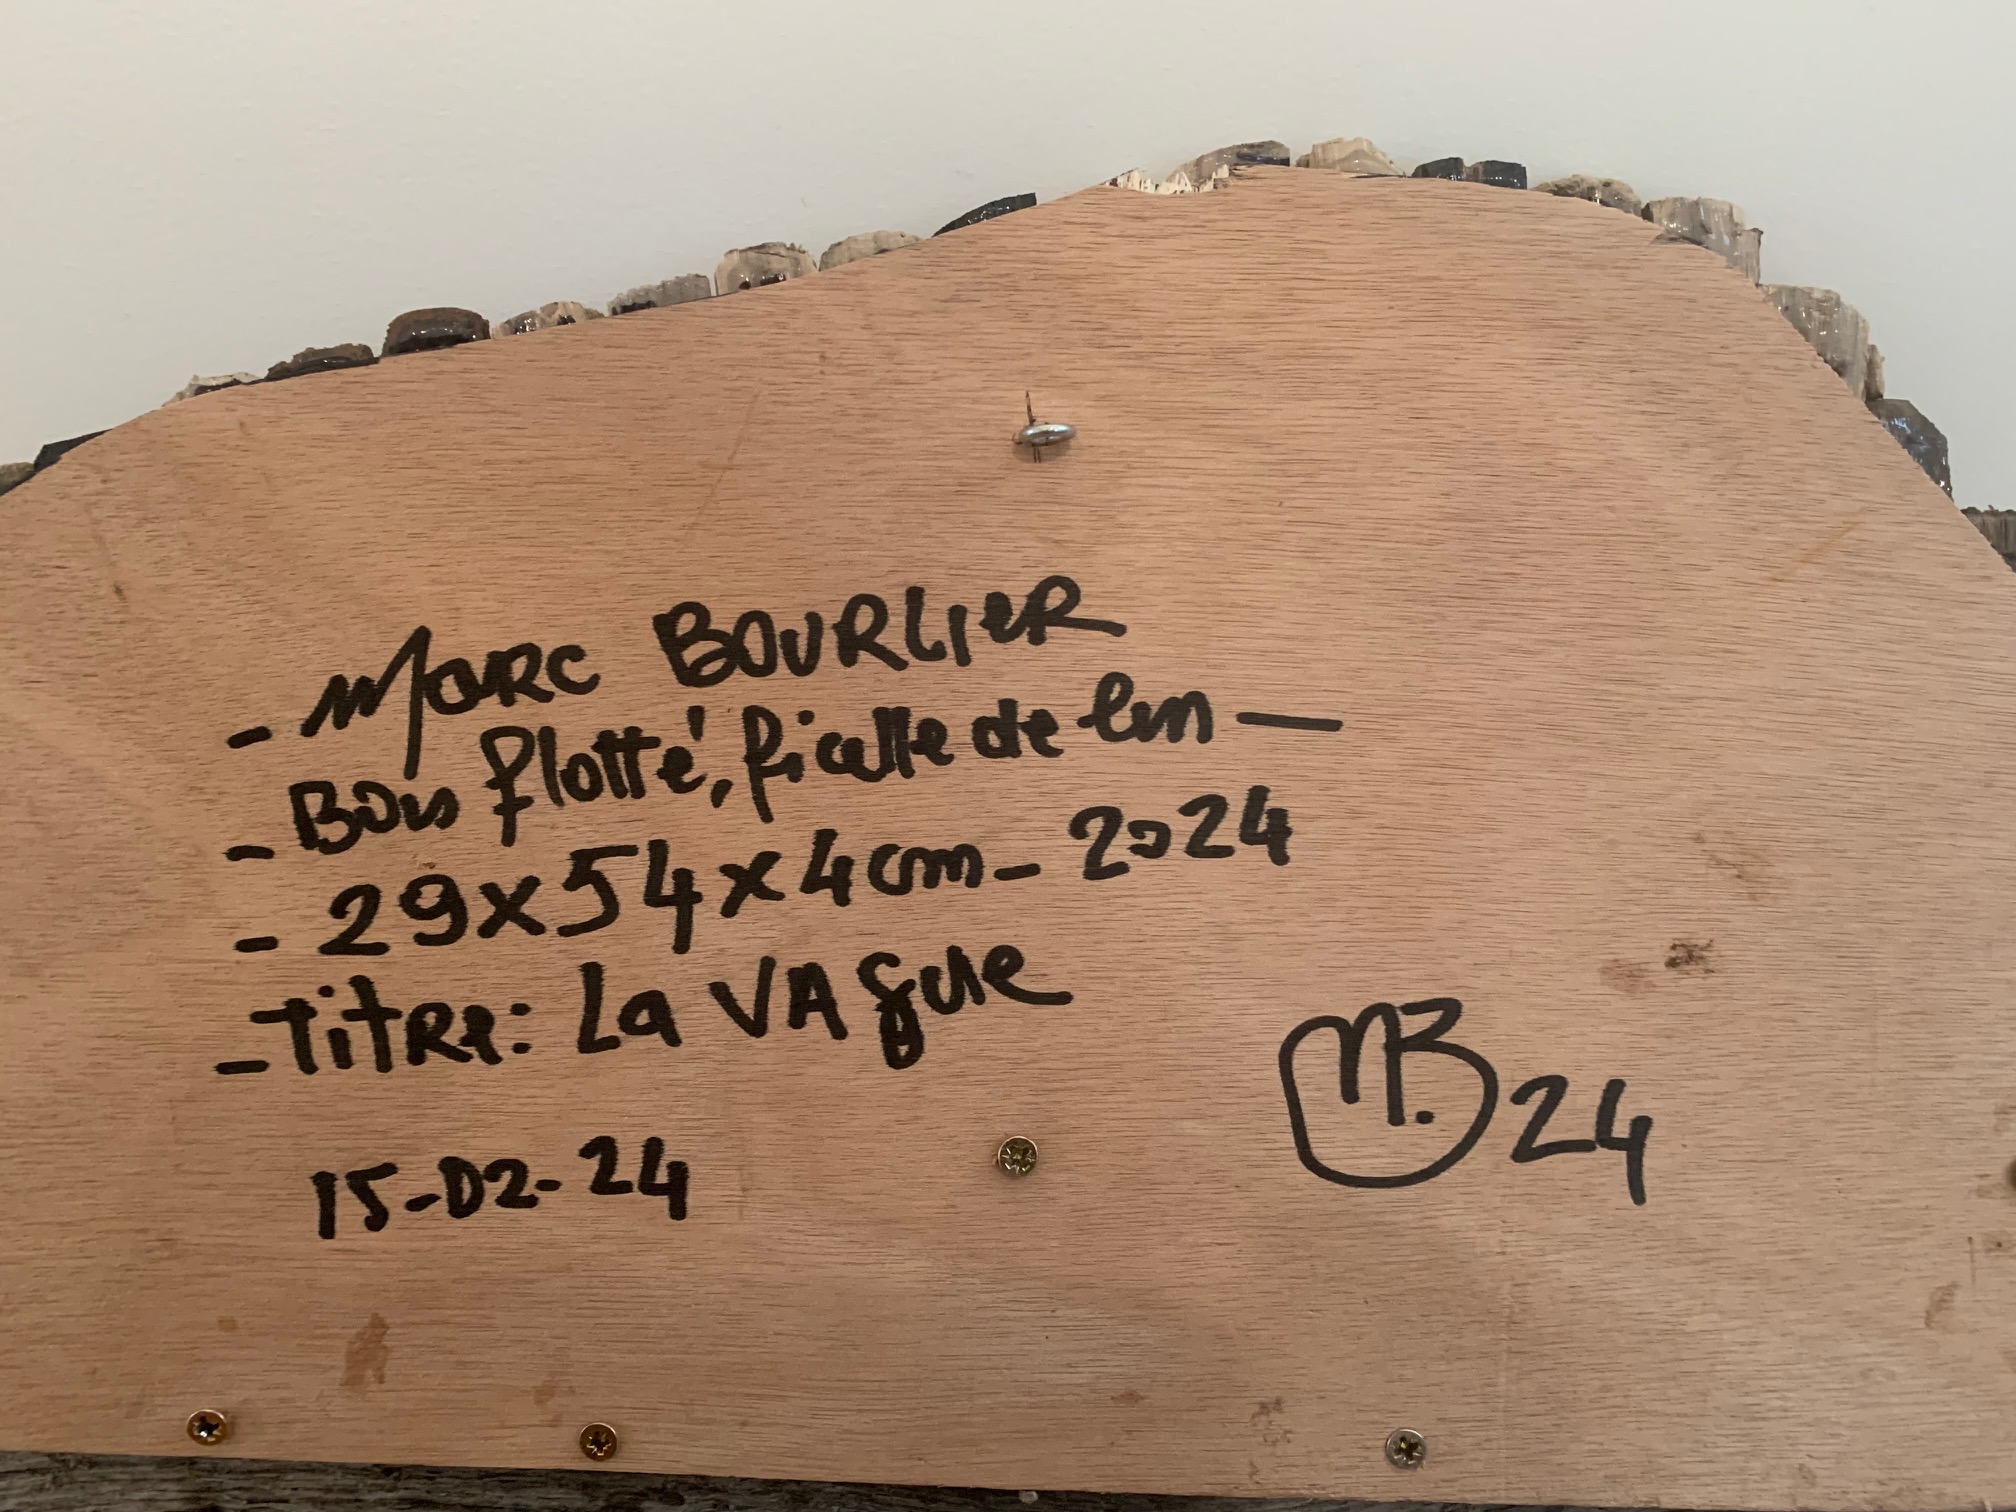 - MARC BOURLIER
- Bois flotté, ficelle de lin —
- 29x54x4cm - 2024
- TITRE: La VAgue
15-02-24
MB. 24